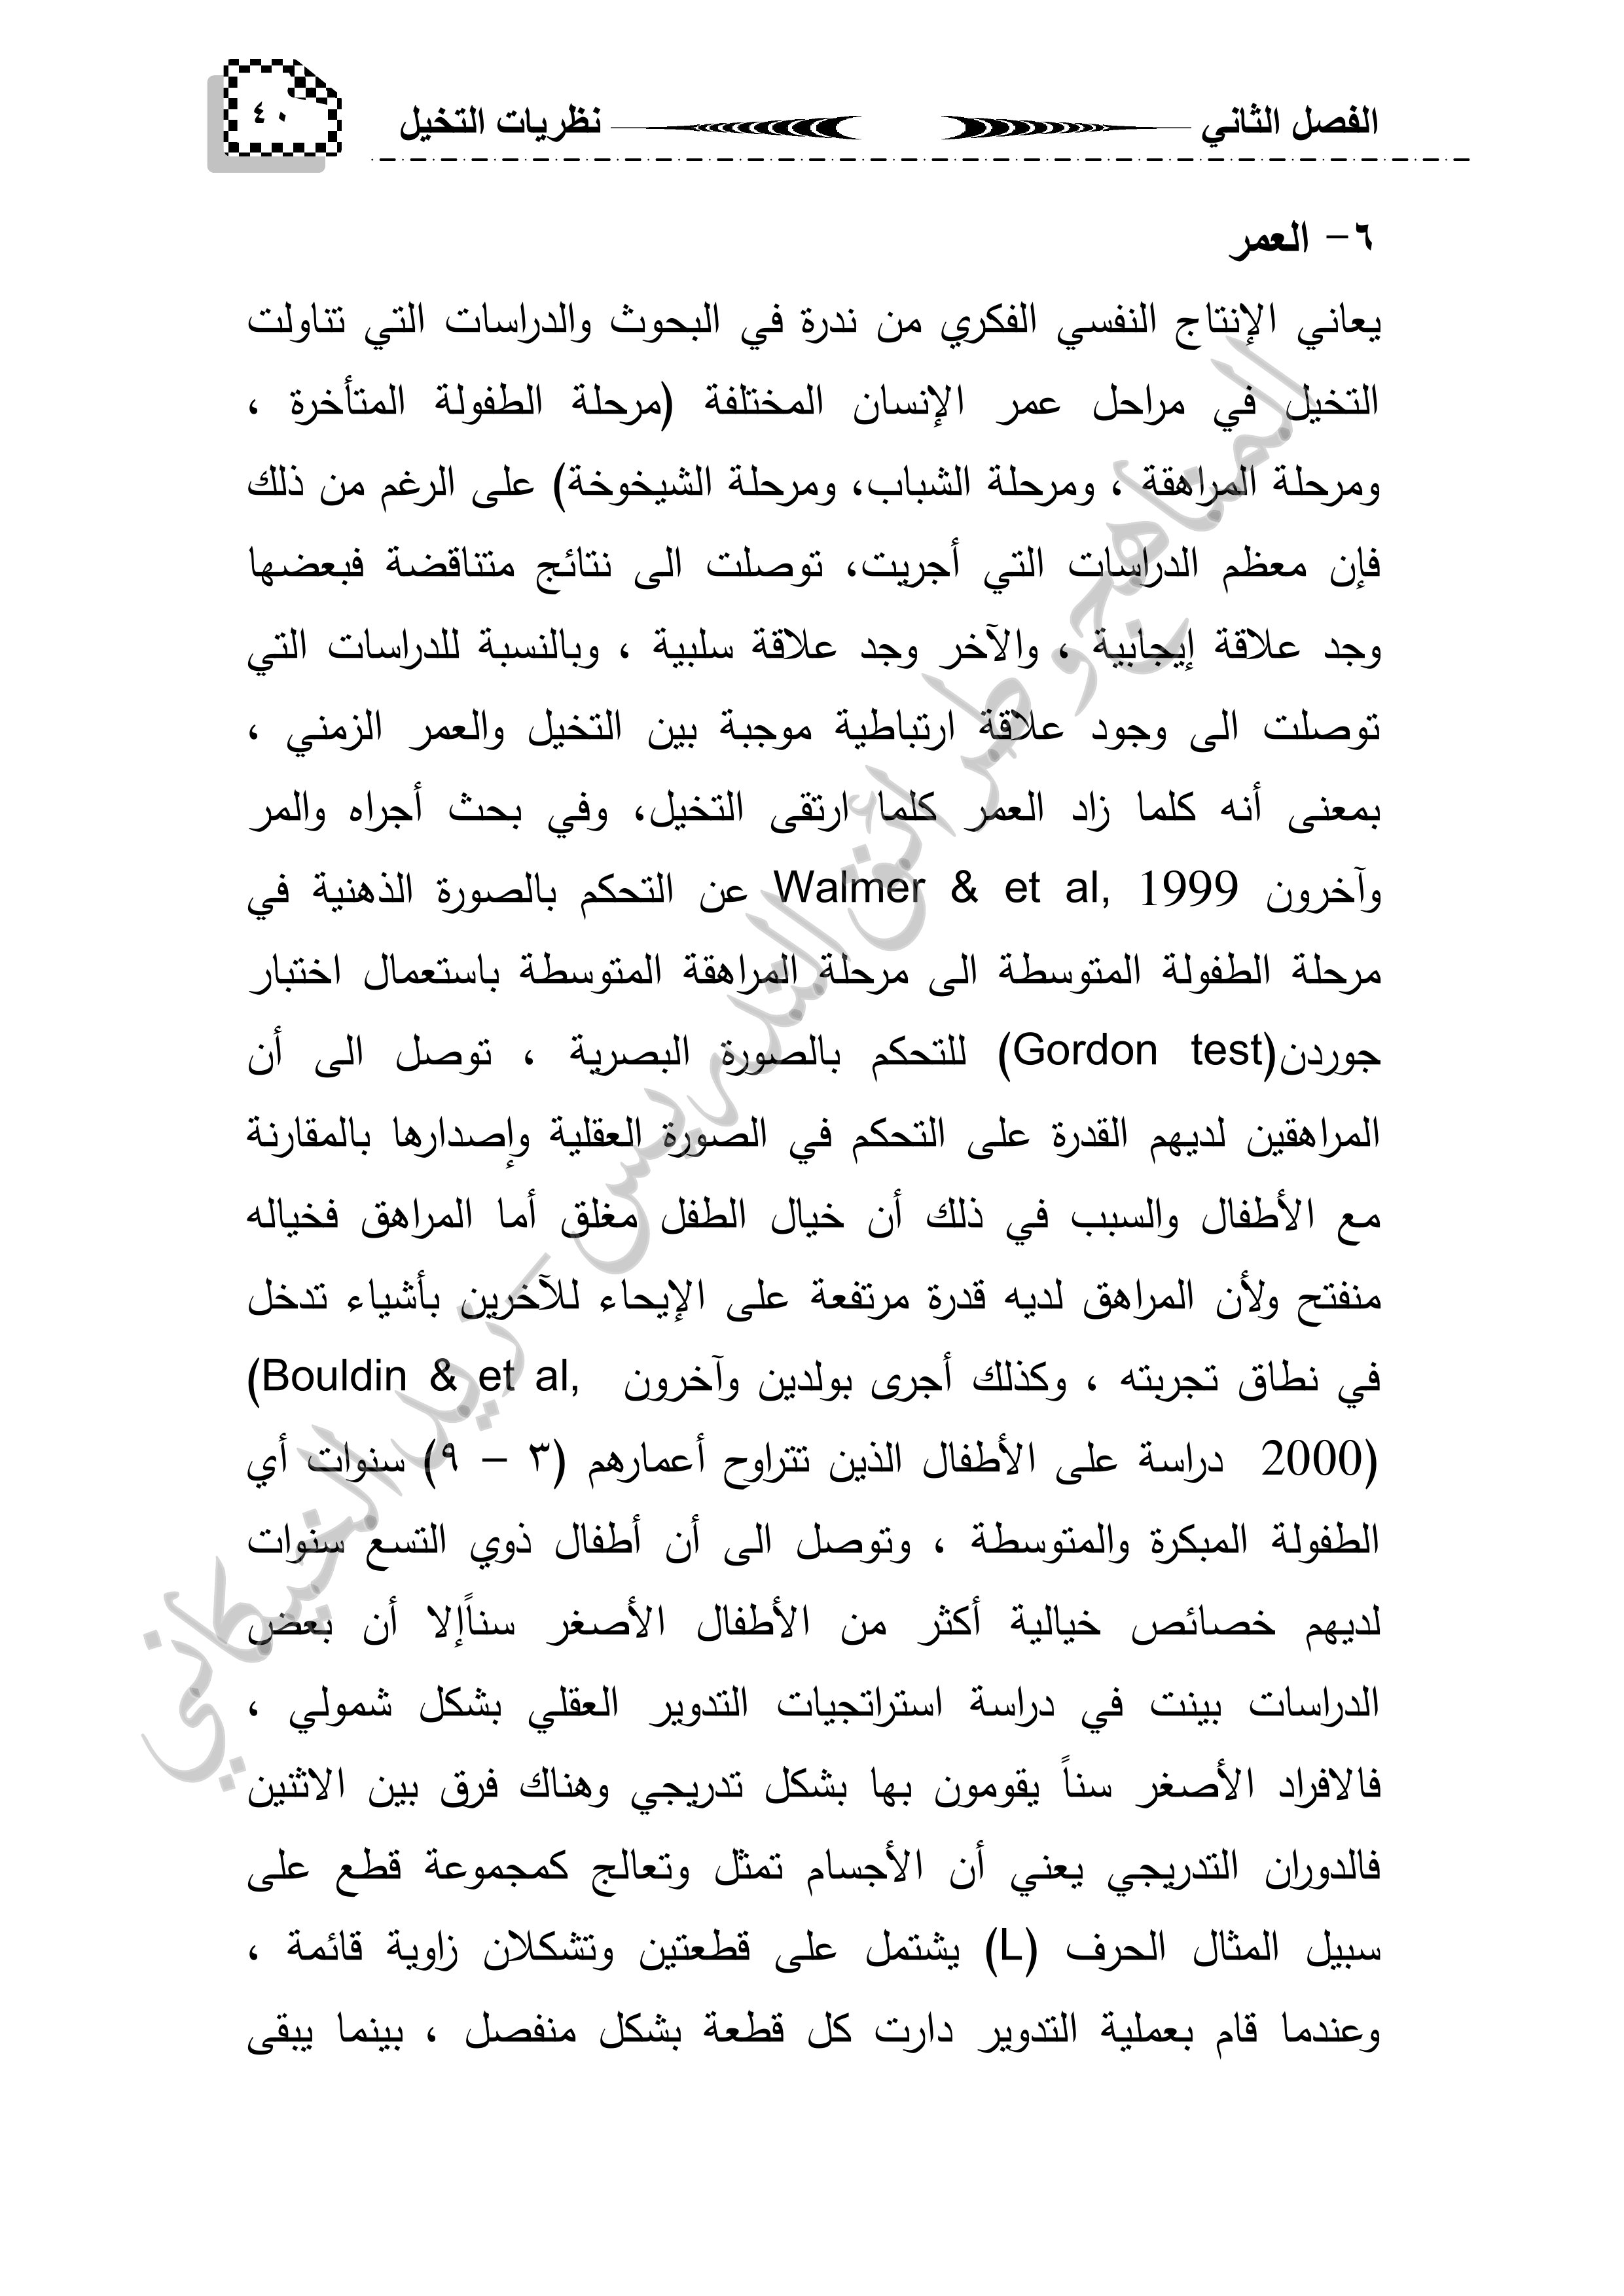 الفصل الثاني
نظريات التخيل
٤٠
٦- العمر
يعاني الإنتاج النفسي الفكري من ندرة في البحوث والدراسات التي تناولت
التخيل في مراحل عمر الإنسان المختلفة (مرحلة الطفولة المتأخرة ،
ومرحلة المراهقة ، ومرحلة الشباب، ومرحلة الشيخوخة) على الرغم من ذلك
فإن معظم الدراسات التي أجريت، توصلت الى نتائج متناقضة فبعضها
وجد علاقة إيجابية ، والآخر وجد علاقة سلبية ، وبالنسبة للدراسات التي
توصلت الى وجود علاقة ارتباطية موجبة بين التخيل والعمر الزمني ،
بمعنى أنه كلما زاد العمر كلما ارتقى التخيل، وفي بحث أجراه والمر
وآخرون Walmer & et al, 1999 عن التحكم بالصورة الذهنية في
مرحلة الطفولة المتوسطة الى مرحلة المراهقة المتوسطة باستعمال اختبار
جوردن(Gordon test) للتحكم بالصورة البصرية ، توصل الى أن
المراهقين لديهم القدرة على التحكم في الصورة العقلية وإصدارها بالمقارنة
مع الأطفال والسبب في ذلك أن خيال الطفل مغلق أما المراهق فخياله
منفتح ولأن المراهق لديه قدرة مرتفعة على الإيحاء للآخرين بأشياء تدخل
في نطاق تجربته ، وكذلك أجرى بولدين وآخرون (Bouldin & et al,
2000) دراسة على الأطفال الذين تتراوح أعمارهم (٣ – ٩) سنوات أي
الطفولة المبكرة والمتوسطة ، وتوصل الى أن أطفال ذوي التسع سنوات
لديهم خصائص خيالية أكثر من الأطفال الأصغر سناًإلا أن بعض
الدراسات بينت في دراسة استراتجيات التدوير العقلي بشكل شمولي ،
فالافراد الأصغر سناً يقومون بها بشكل تدريجي وهناك فرق بين الاثنين
فالدوران التدريجي يعني أن الأجسام تمثل وتعالج كمجموعة قطع على
سبيل المثال الحرف (L) يشتمل على قطعتين وتشكلان زاوية قائمة ،
وعندما قام بعملية التدوير دارت كل قطعة بشكل منفصل ، بينما يبقى
المناهج وطرائق التدريس - زيد الخيكاني